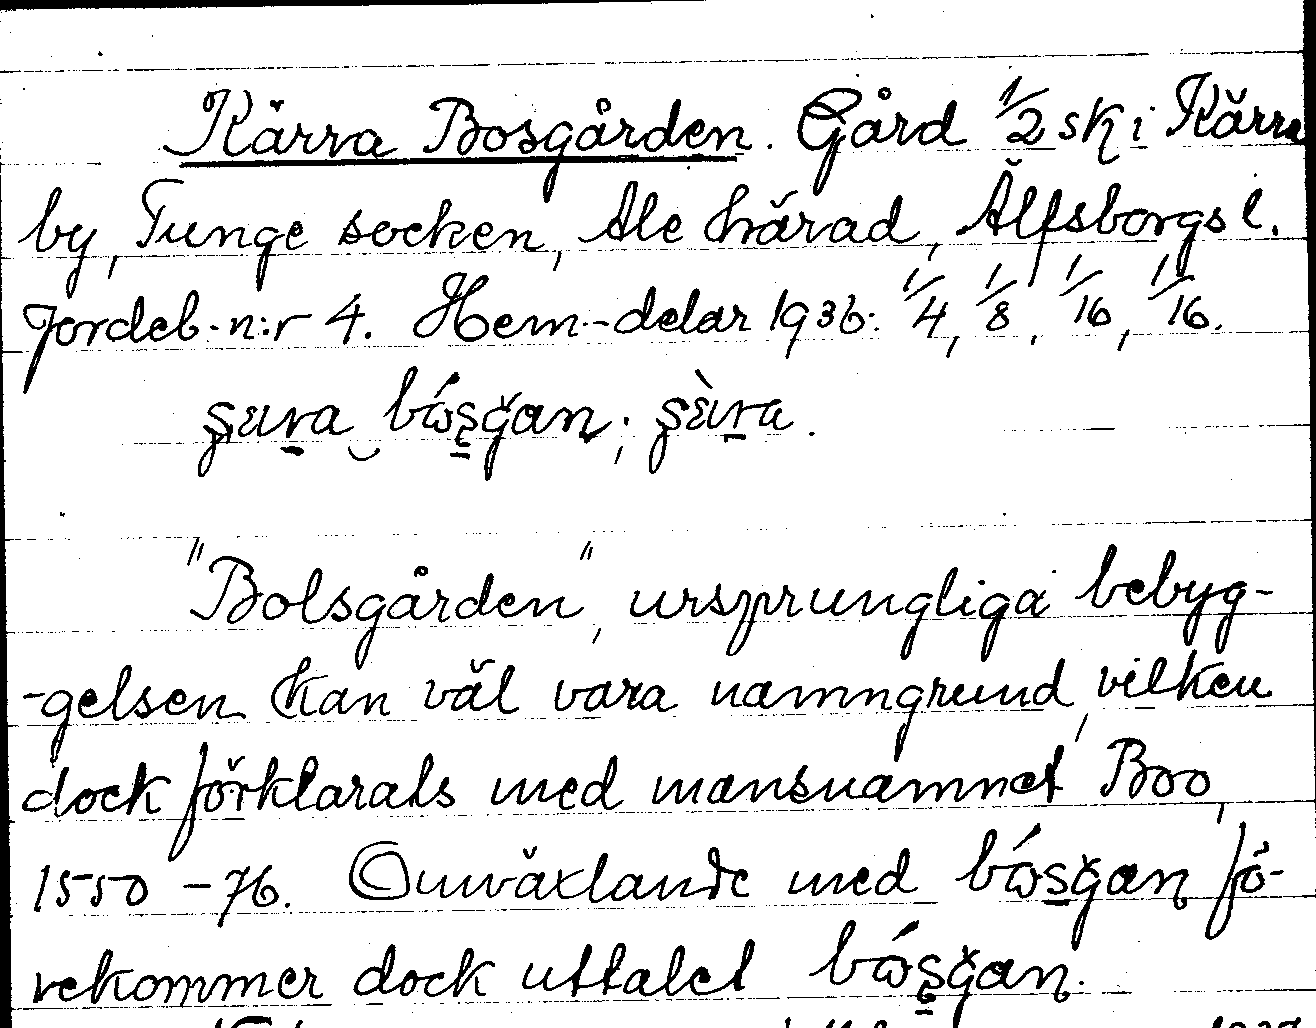 Kärra Bosgården. Gård 1/2 sk i Kärra
by, Tunge socken, Ale härad, Älfsborgs l.
Jordeb. n:r 4. Hem.-delar 1936: 1/4, 1/8, 1/16, 1/16.
"Bolsgården", ursprungliga bebyg-
-gelsen kan väl vara namngrund, vilken
dock förklarats med mansnamnet Boo,
1550-76. Omväxlande med fö-
rekommer dock uttalet